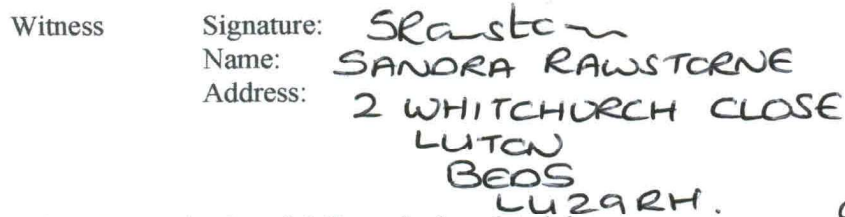 Witness Signature: SRawstorne
Name: SANDRA RAWSTORNE
Address: 2 WHITCHURCH CLOSE
LUTON
BEDS
LU29RH.